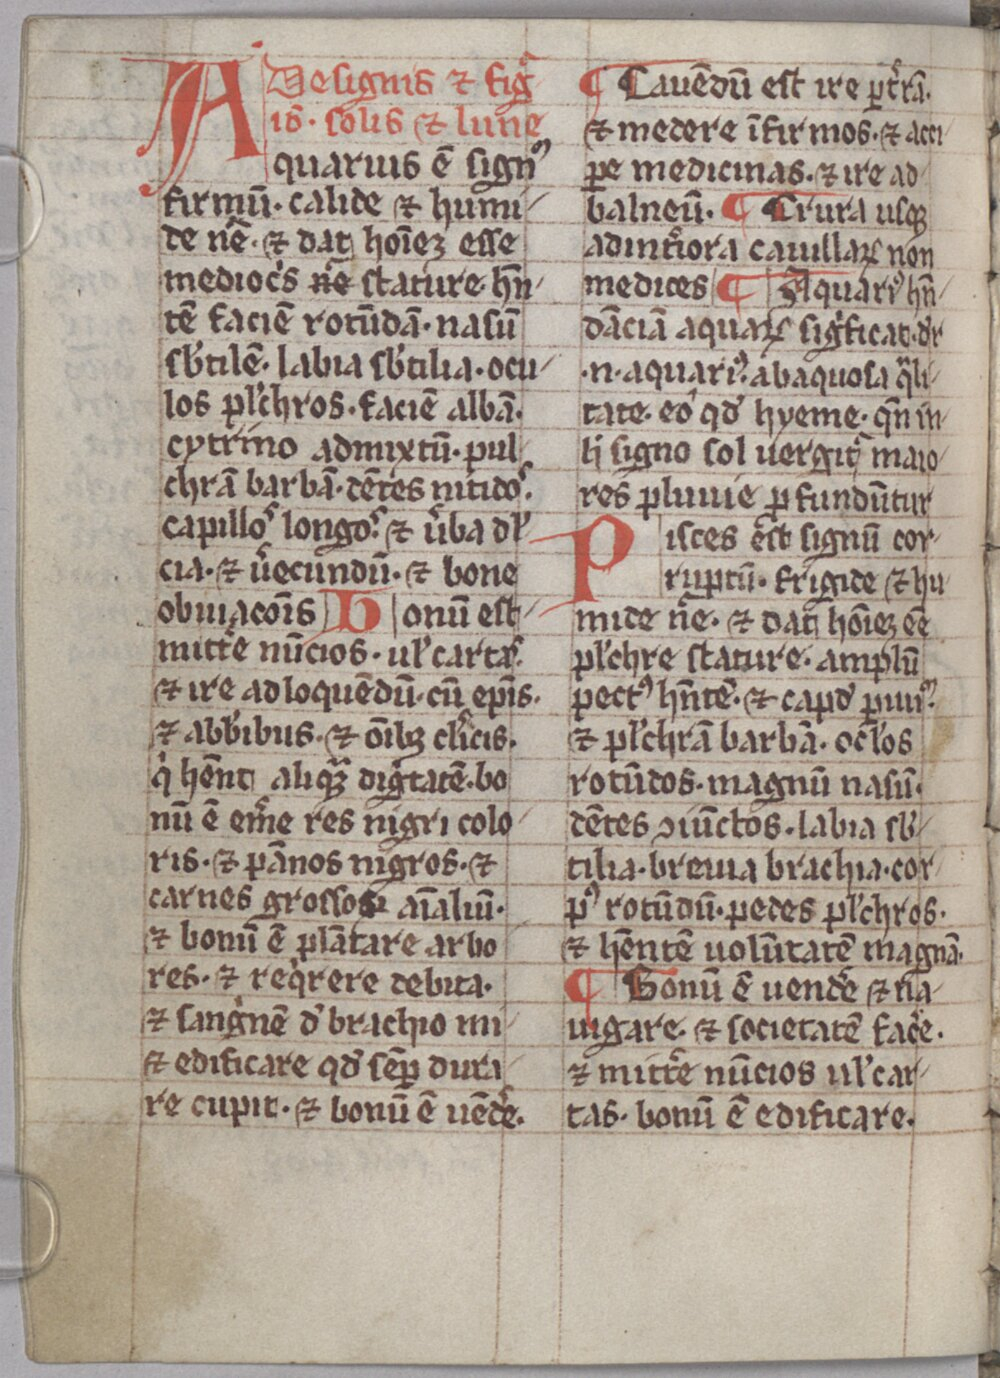 De signis ⁊ fig̃
is · solis ⁊ lune
Aquarius ē signꝰ
firmū · calide ⁊ humi
de nr̄e · ⁊ dat hoīez esse
mediocs̓ nr̄e stature · hn̄
tē faciē rotūdā · nasū
sb̓tilē · labia sb̓tilia · ocu
los pl̓chros · faciē albā ·
cytrino admixtū · pul
chrā barbā · dētes nitidos ·
capillos longos · ⁊ ūba dl̓
cia · ⁊ ūecundū · ⁊ bone
obuiacōis Bonū est
mittr̄e nūcios · ul̓ cartas ·
⁊ ire ad loquēdū · cū ep̄is ·
⁊ abb̄ibus · ⁊ oībꝫ cl̓icis ·
q̓ hn̄t aliquā dig̓tatē · bo
nū ē em̄e res nigri colo
ris · ⁊ pānos nigros · ⁊
carnes grossos aīaliū ·
⁊ bonū ē plātare arbo
res · ⁊ req̓rere debita ·
⁊ sang̓nē d̓ brachio mi
⁊ edificare qd̓ sēp dura
re cupit · ⁊ bonū ē uēde̓ ·
¶ Cauēdū est ire ꝑ tr̄ā ·
⁊ medere īfirmos · ⁊ acci
pe medicinas · ⁊ ire ad
balneū · ¶ Crura usqꝫ
ad int̓iora cauillaꝝ non
medices ¶ Aquariꝰ hn̄
dāciā aquaꝝ sig̓ficat · dr̄
· n · aquariꝰ · ab aquosa q̄li
tate · eo̓ qd̓ hyeme · qn̄ in
ɫi signo sol uergit̃ maio
res pluuie ꝑfundūtur
Pisces est signū cor
ruptū · frigide ⁊ hu
mide nr̄e · ⁊ dat hoīez ēē
pl̓chre stature · amplū
pectꝰ hn̄tē · ⁊ capd̓ paruū ·
⁊ pl̓chrā barbā · ocl̓os
rotūdos · magnū nasū ·
dētes ꝯiūctos · labia sb̓
tilia · breuia brachia · cor
pꝰ rotūdū · pedes pl̓chros ·
⁊ hn̄tē uolūtatē magnā ·
¶ Bonū ē uende̓ ⁊ na
uigare · ⁊ societatē face̓ ·
⁊ mittr̄e nūcios ul̓ car
tas · bonū ē edificare ·